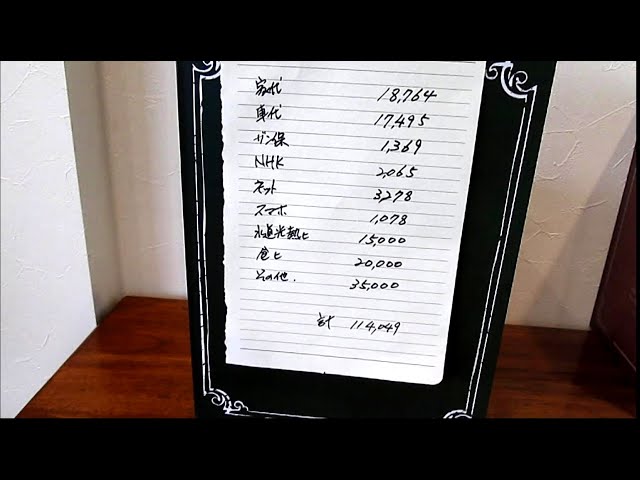 家代 18,764
車代 17,495
ガン保 1,369
NHK 2,065
ネット 3,278
スマホ 1,078
水道光熱ヒ 15,000
食ヒ 20,000
その他. 35,000
計 114,049